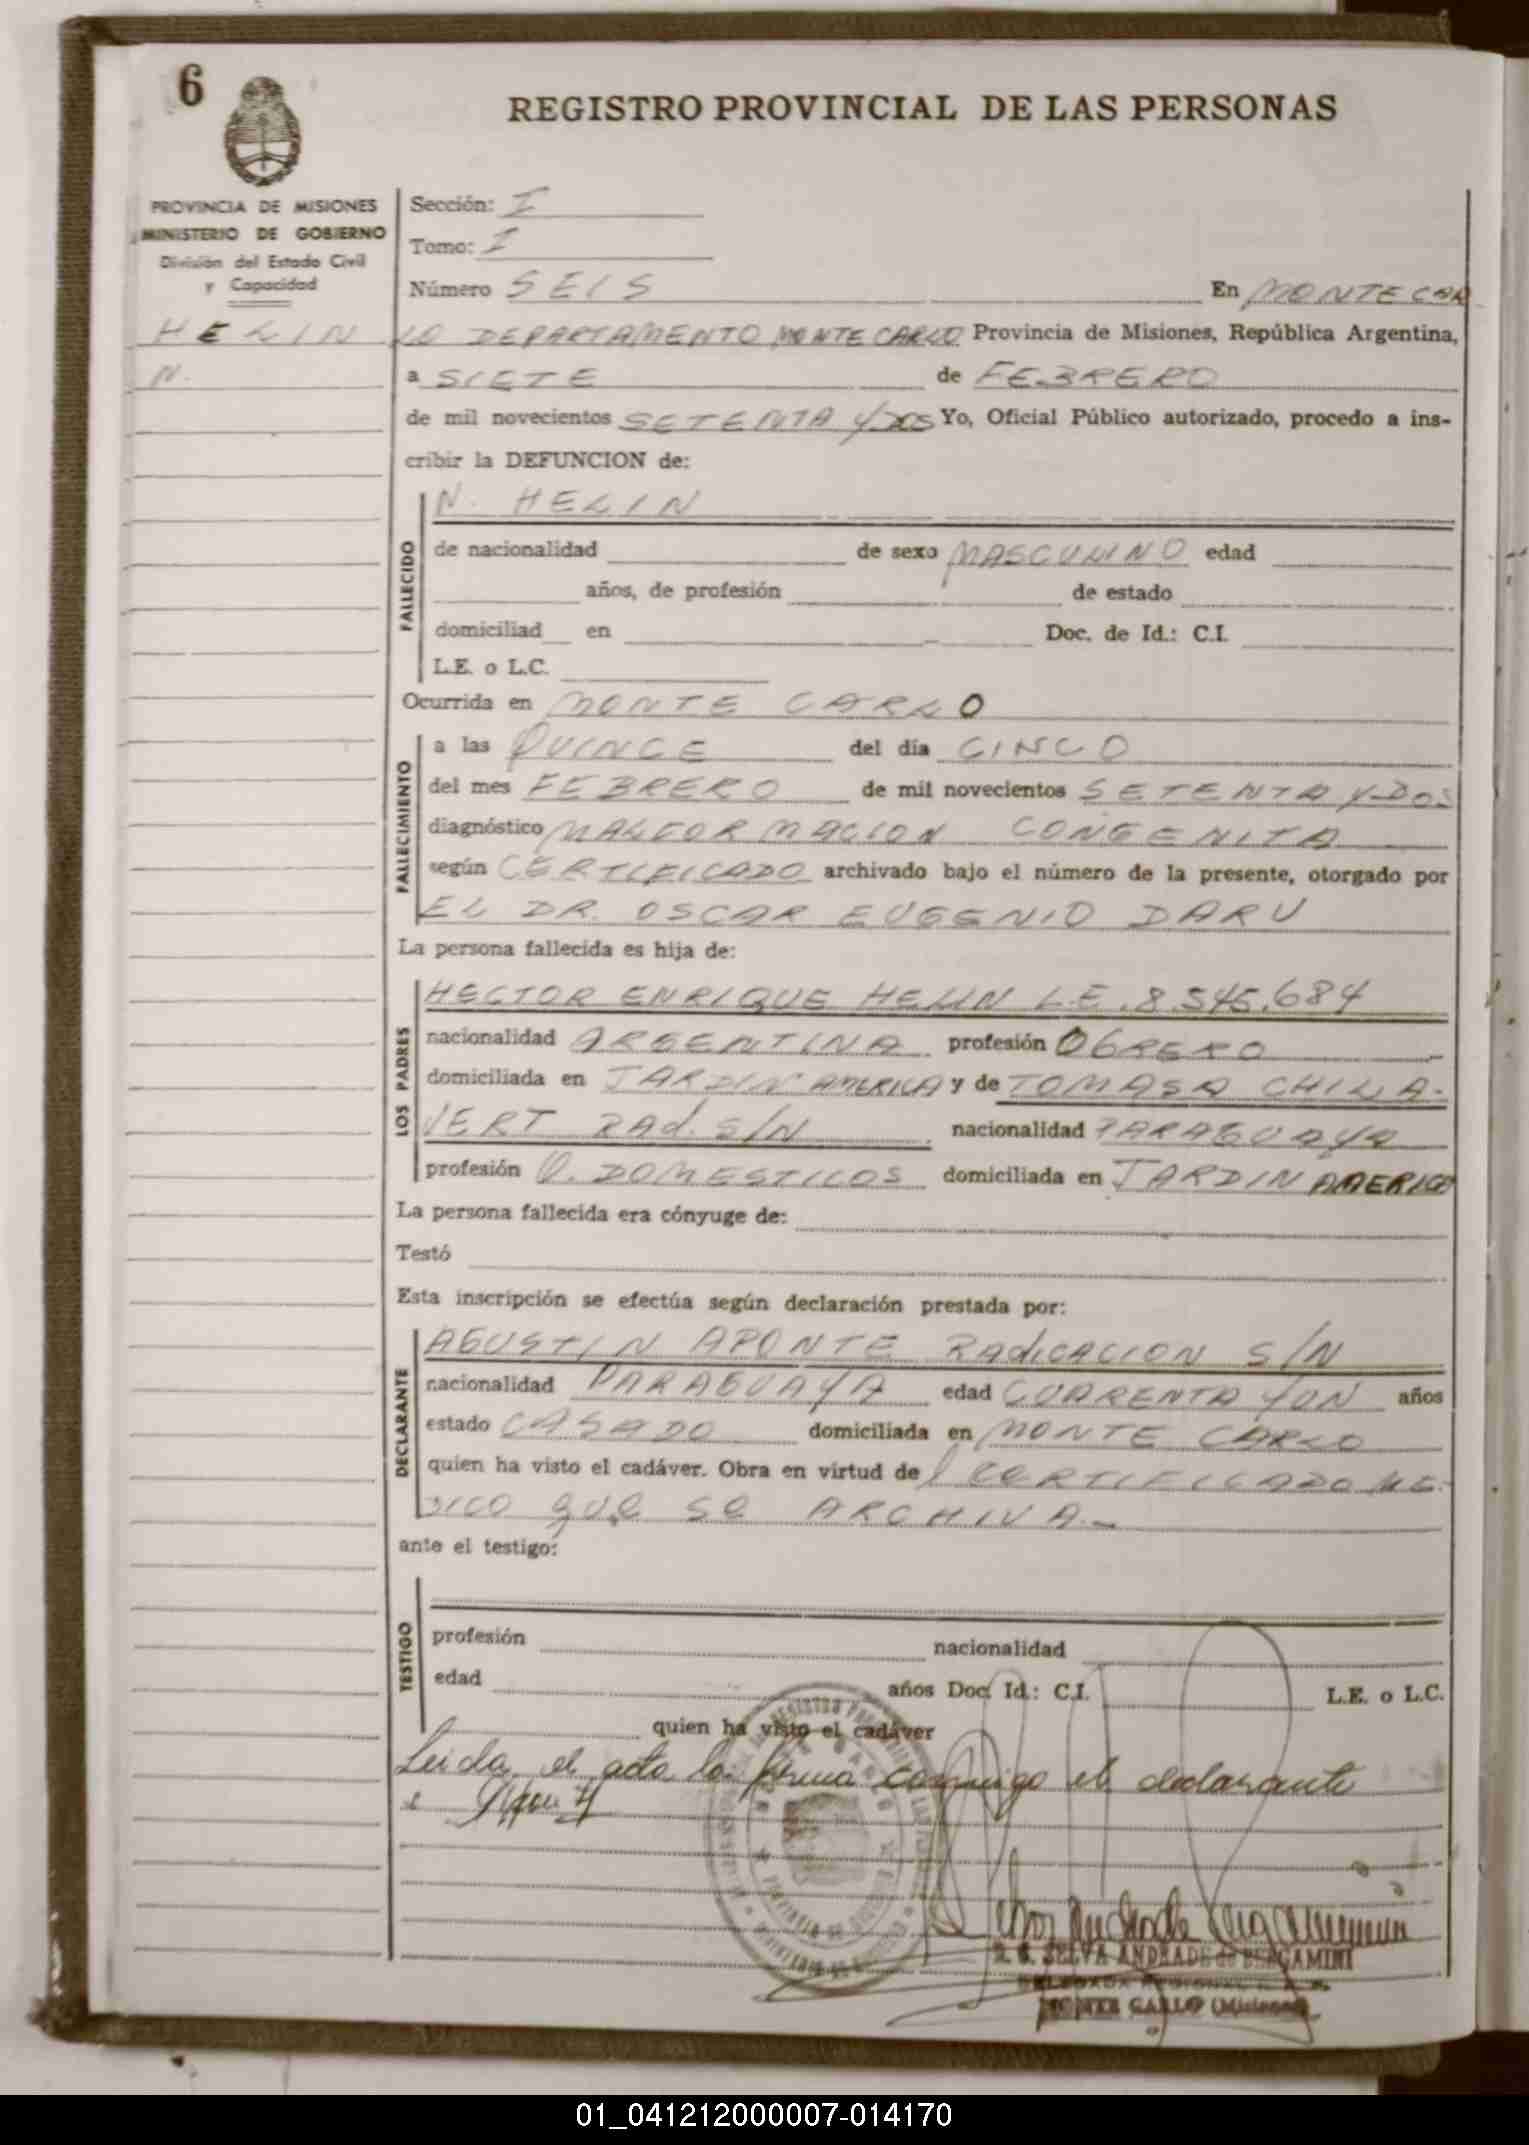 6
REGISTRO PROVINCIAL DE LAS PERSONAS
PROVINCIA DE MISIONES
MINISTERIO DE GOBIERNO
División del Estado Civil
y Capacidad
HELIN
N.
Sección: I
Tomo: I
Número SEIS En MONTECAR
LO DEPARTAMENTO MONTE CARLO Provincia de Misiones, República Argentina,
a SIETE de FEBRERO
de mil novecientos SETENTA Y DOS Yo, Oficial Público autorizado, procedo a ins-
cribir la DEFUNCION de:
FALLECIDO
N. HELIN
de nacionalidad de sexo MASCULINO edad
años, de profesión de estado
domiciliad en Doc. de Id.: C.I.
L.E. o L.C.
Ocurrida en MONTE CARLO
FALLECIMIENTO
a las QUINCE del día CINCO
del mes FEBRERO de mil novecientos SETENTA Y DOS
diagnóstico MALFORMACION CONGENITA
según CERTIFICADO archivado bajo el número de la presente, otorgado por
EL DR. OSCAR EUGENIO DARU
La persona fallecida es hija de:
LOS PADRES
HECTOR ENRIQUE HELIN L.E. 8.545.684
nacionalidad ARGENTINA profesión OBRERO
domiciliada en JARDIN AMERICA y de TOMASA CHILA-
VERT RAd. S/N nacionalidad PARAGUAYA
profesión Q. DOMESTICOS domiciliada en JARDIN AMERICA
La persona fallecida era cónyuge de:
Testó
Esta inscripción se efectúa según declaración prestada por:
DECLARANTE
AGUSTIN APONTE RAdICACION S/N
nacionalidad PARAGUAYA edad CUARENTA Y UN años
estado CASADO domiciliada en MONTE CARLO
quien ha visto el cadáver. Obra en virtud de l CERTIFICADO ME-
DICO QUE SE ARCHIVA.-
ante el testigo:
TESTIGO
profesión nacionalidad
edad años Doc. Id.: C.I. L.E. o L.C.
quien ha visto el cadáver
Leida el acta la firma conmigo el declarante
SELVA ANDRADE de BERGAMINI
MONTE CARLO (Misiones)
01_041212000007-014170